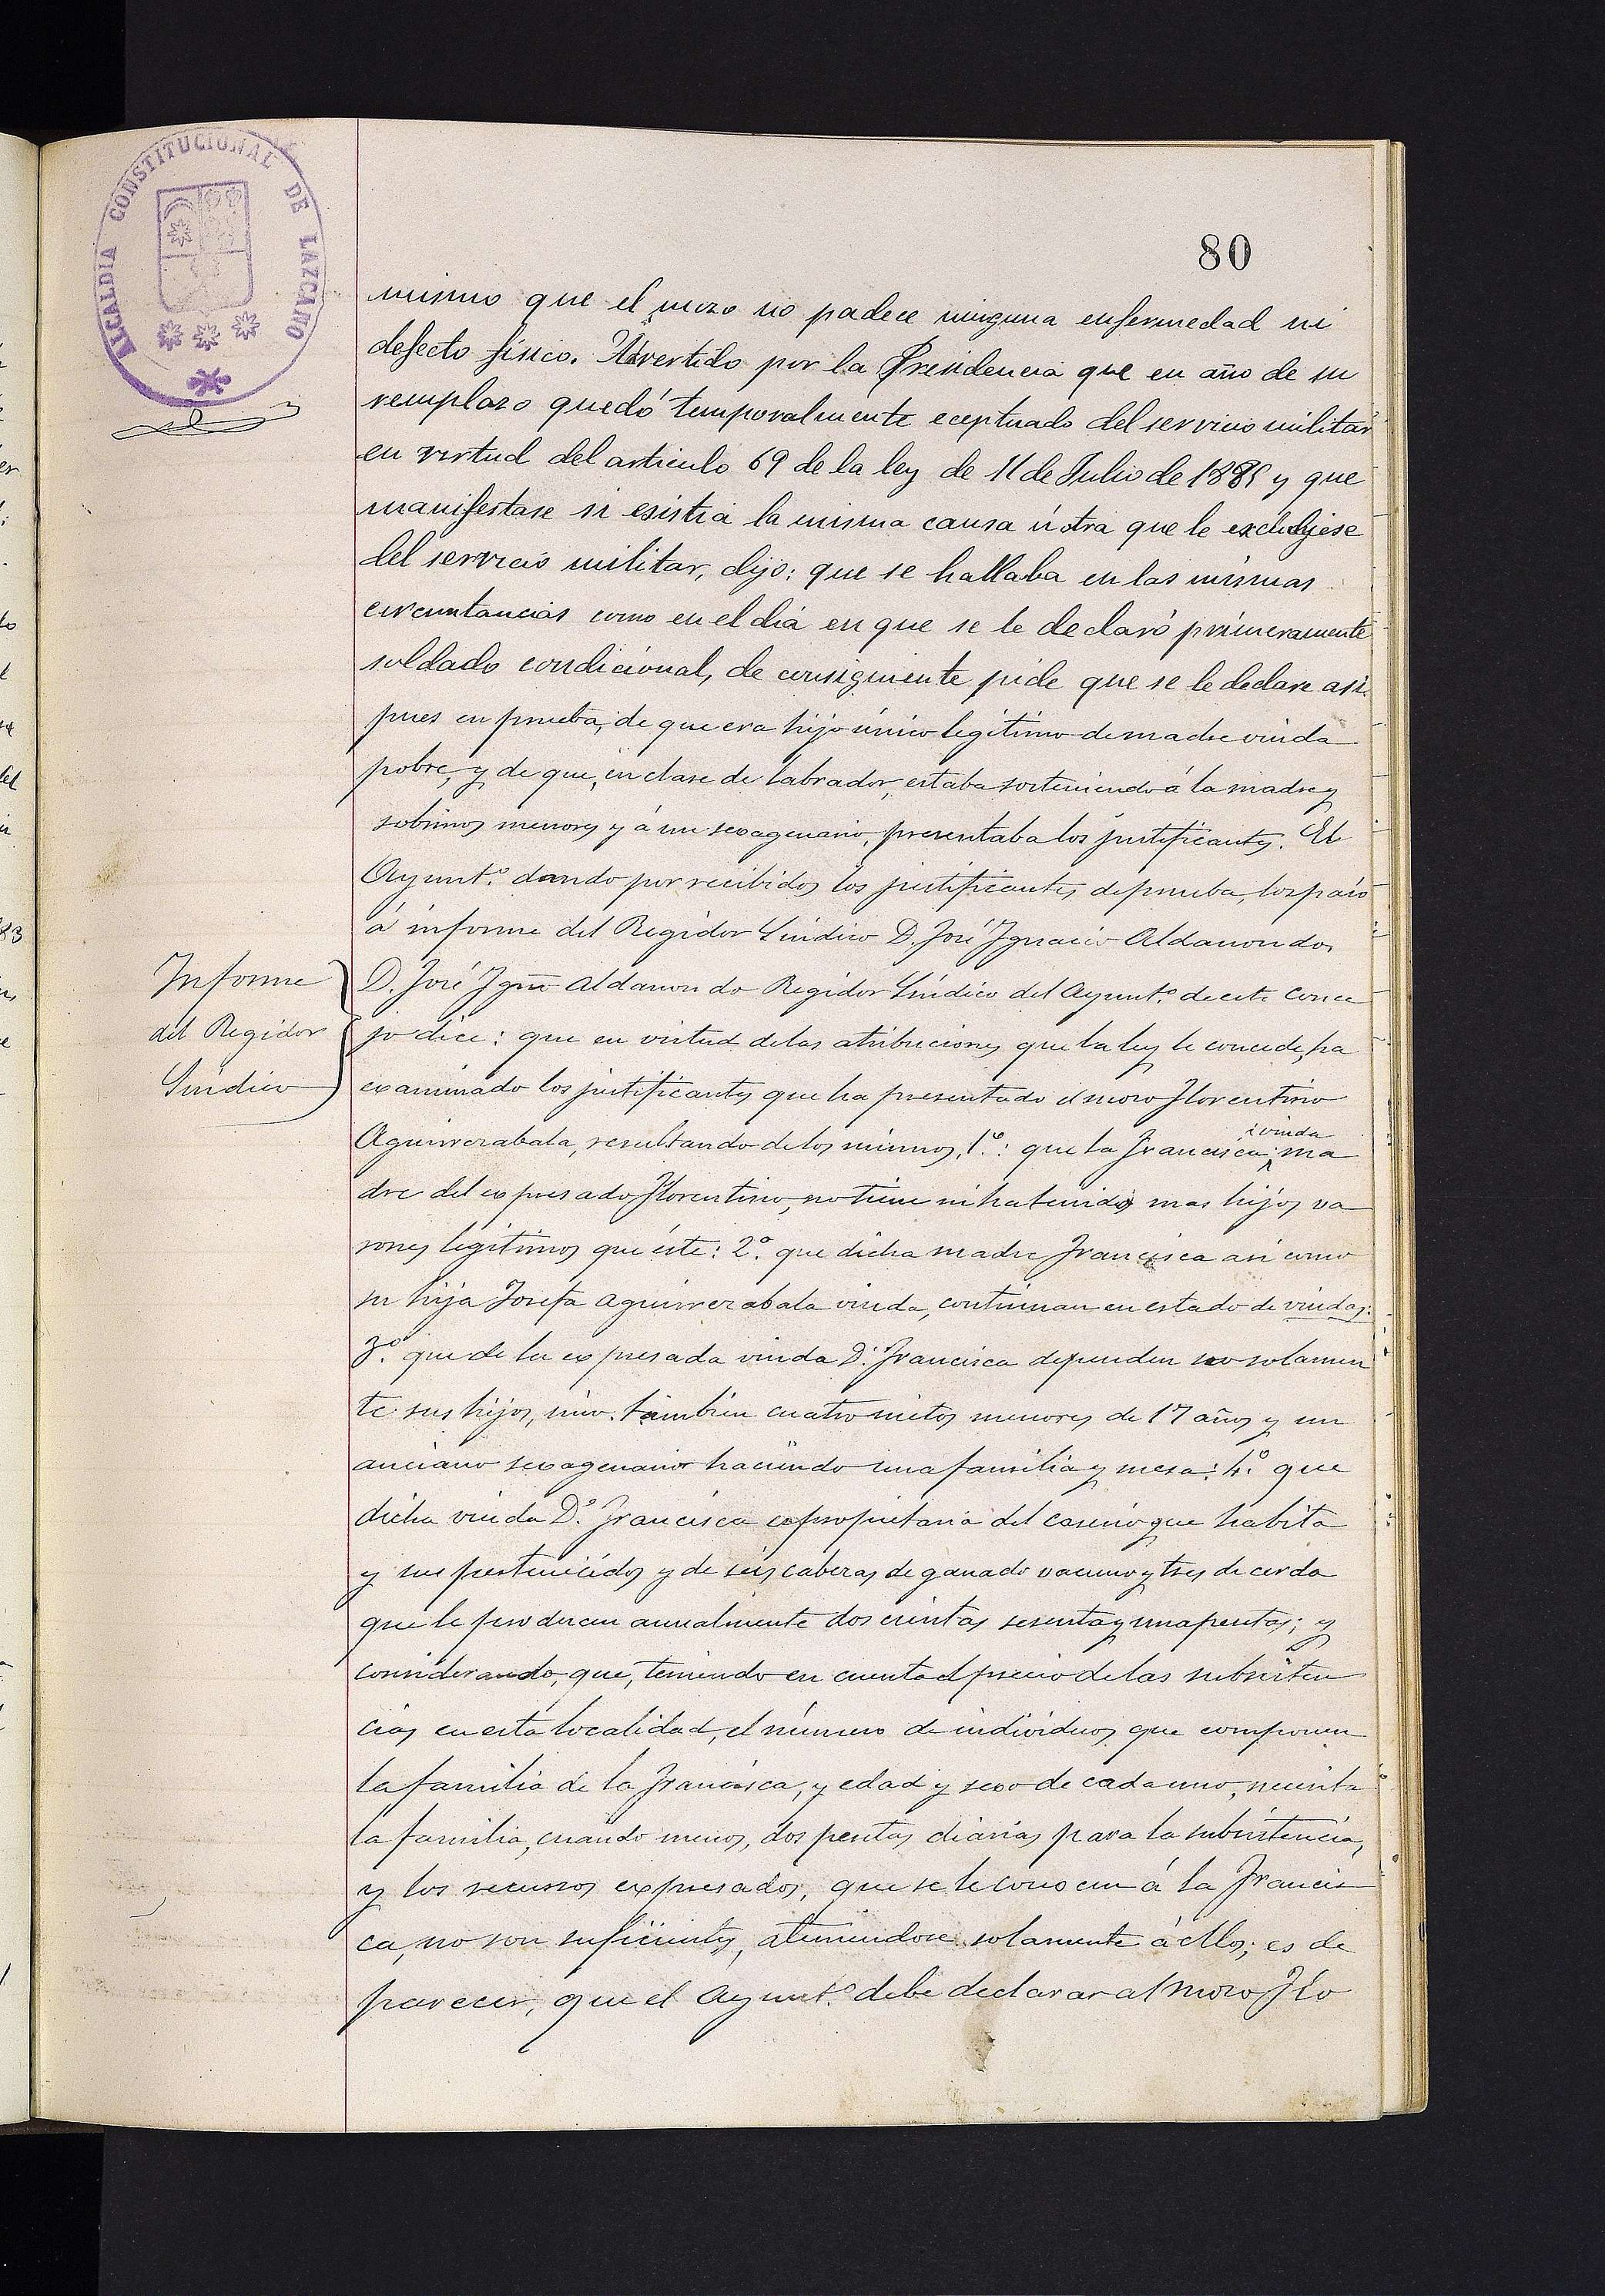 ALCALDIA CONSTITUCIONAL DE LAZCANO
80
mismo que el mozo no padece ninguna enfermedad ni
defecto físico. Advertido por la Presidencia que en año de su
remplazo quedó temporalmente eceptuado del servicio militar
en virtud del articulo 69 de la ley de 11 de Julio de 1885 y que
manifestase si esistia la misma causa ú otra que le excluyese
del servicio militar, dijo: que se hallaba en las mismas
circuntancias como en el dia en que se le declaró primeramente
soldado condicional, de consiguiente pide que se le declare asi.
pues en prueba, de que era hijo único legítimo de madre viuda
pobre, y de que, en clase de labrador, estaba sosteniendo á la madre y
sobrinos menores y á un sexagenario, presentaba los justificantes. El
Ayunt.º dando por recibidos los justificantes de prueba, los pasó
á informe del Regidor Síndico D. José Ignacio Aldanondo.
Informe
del Regidor
Síndico
D. José Ign.º Aldanondo Regidor Síndico del Ayunt.º de este conce
jo dice: que en virtud de las atribuciones que la ley le concede, ha
examinado los justificantes que ha presentado el mozo Florentino
Aguirrezabala, resultando de los mismos, 1.º: que la Francisca, viuda ma
dre del expresado Florentino, no tiene ni ha tenido mas hijos va
rones legítimos que éste: 2.º que dicha madre Francisca asi como
su hija Josefa Aguirrezabala viuda, continuan en estado de viudas:
3.º que de la expresada viuda D.ª Francisca dependen no solamen
te sus hijos, sino también cuatro nietos menores de 17 años y un
anciano sexagenario haciendo una familia y mesa: 4.º que
dicha viuda D.ª Francisca es propietaria del caserio que habita
y sus pertenecidos y de seis cabezas de ganado vacuno y tres de cerda
que le producen anualmente doscientas sesenta y una pesetas; y
considerando, que, teniendo en cuenta el precio de las subsisten
cias en esta localidad, el número de individuos que componen
la familia de la Francisca, y edad y sexo de cada uno, necesita
la familia, cuando menos, dos pesetas diarias para la subsistencia,
y los recursos expresados, que se le conocen á la Francis
ca, no son suficientes, ateniendose solamente á ellos; es de
parecer, que el Ayunt.º debe declarar al mozo Flo